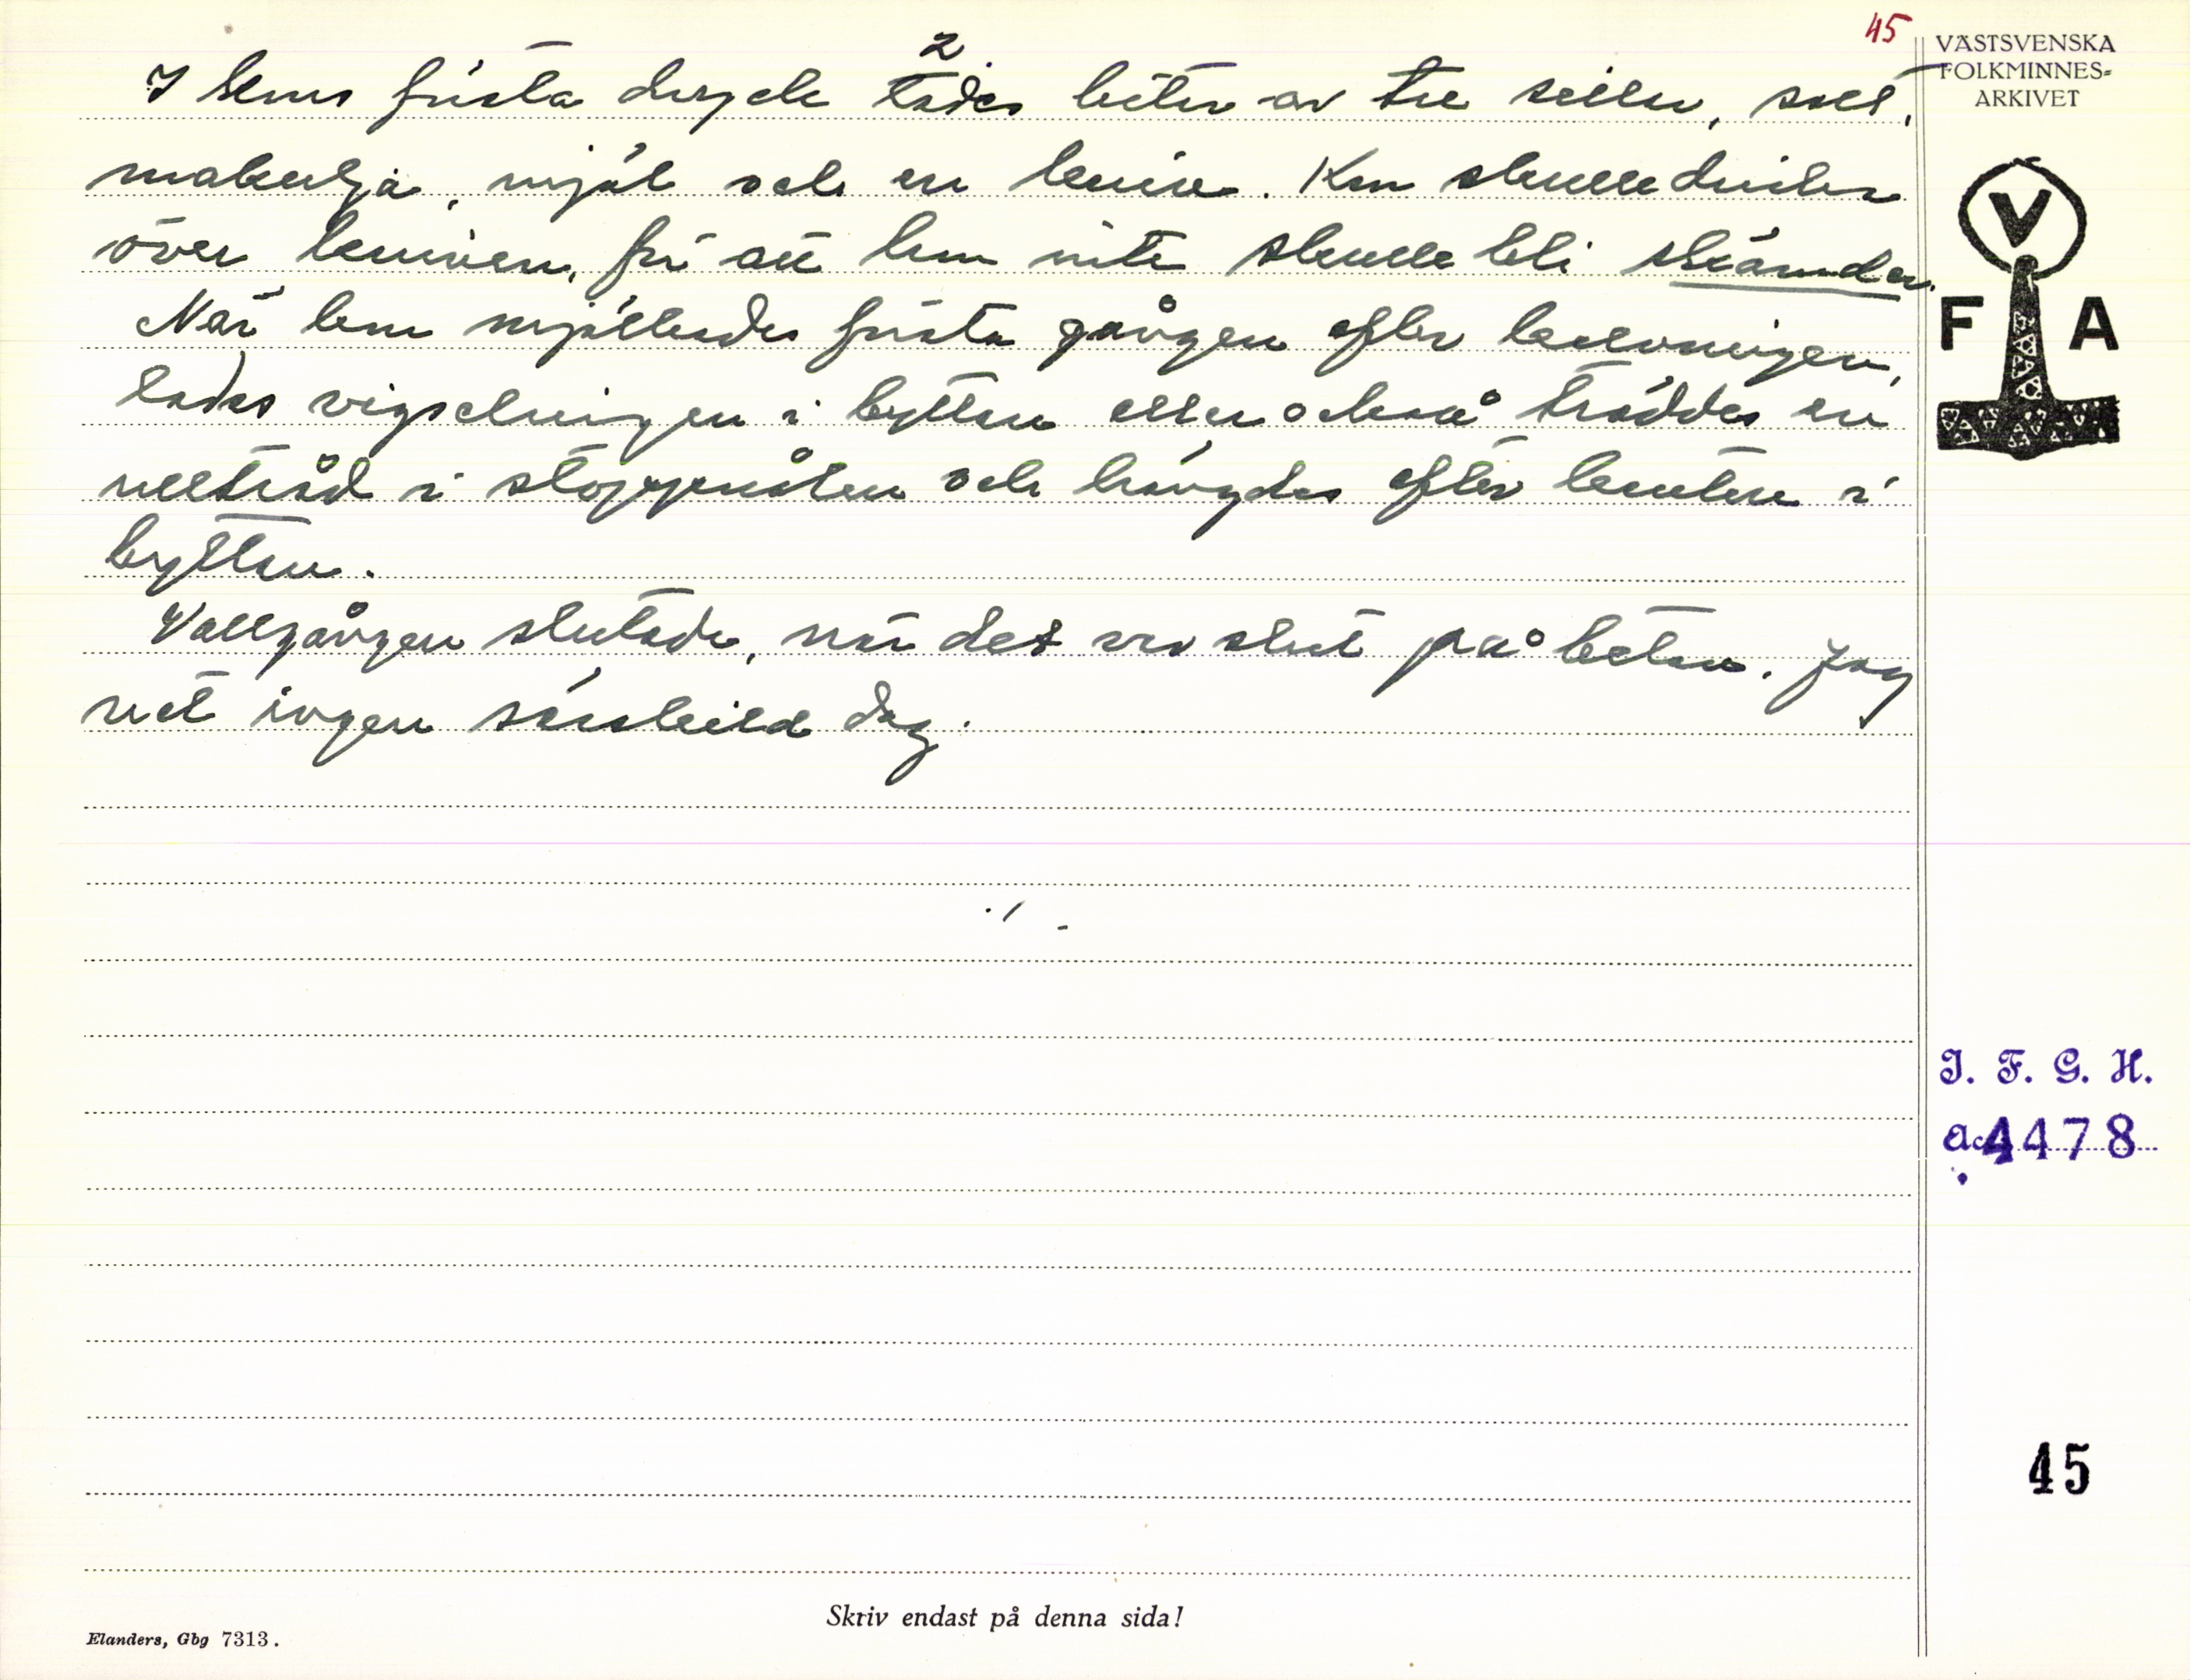 45
VÄSTSVENSKA
FOLKMINNES-
ARKIVET
2
I hens första dryck lades bitar av tre sillar, salt,
malurt, mjöl och en kniv. Kon skulle dricka
över kniven, för att hon inte skulle bli skämder.
När hon mjölkades första gången efter kalvningen,
lades vigselringen i byttan eller också träddes en
ulltråd i stoppnålen och hängdes efter kanten i
byttan.
Vallgången slutade, när det var slut på betan. Jag
vet ingen särskild dag.
V
F A
I. F. G. H.
acc 4478
45
Skriv endast på denna sida!
Elanders, Gbg 7313.